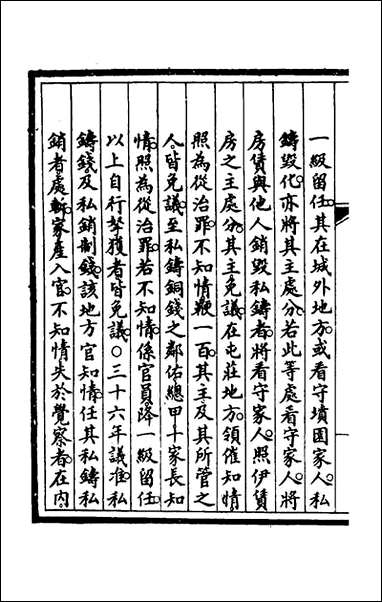 一級留任其在城外地方或看守墳園家人私
鑄毀化亦將其主處分若此等處看守家人將
房賃與他人銷毀私鑄者將看守家人照伊賃
房之主處分其主免議在屯莊地方領催知情
照為從治罪不知情鞭一百其主及其所管之
人皆免議至私鑄銅錢之鄰佑總甲十家長知
情照為從治罪若不知情係官員降一級留任
以上自行拏獲者皆免議○三十六年議准私
鑄錢及私銷制錢該地方官知情任其私鑄私
銷者處斬家產入官不知情失於覺察者在內